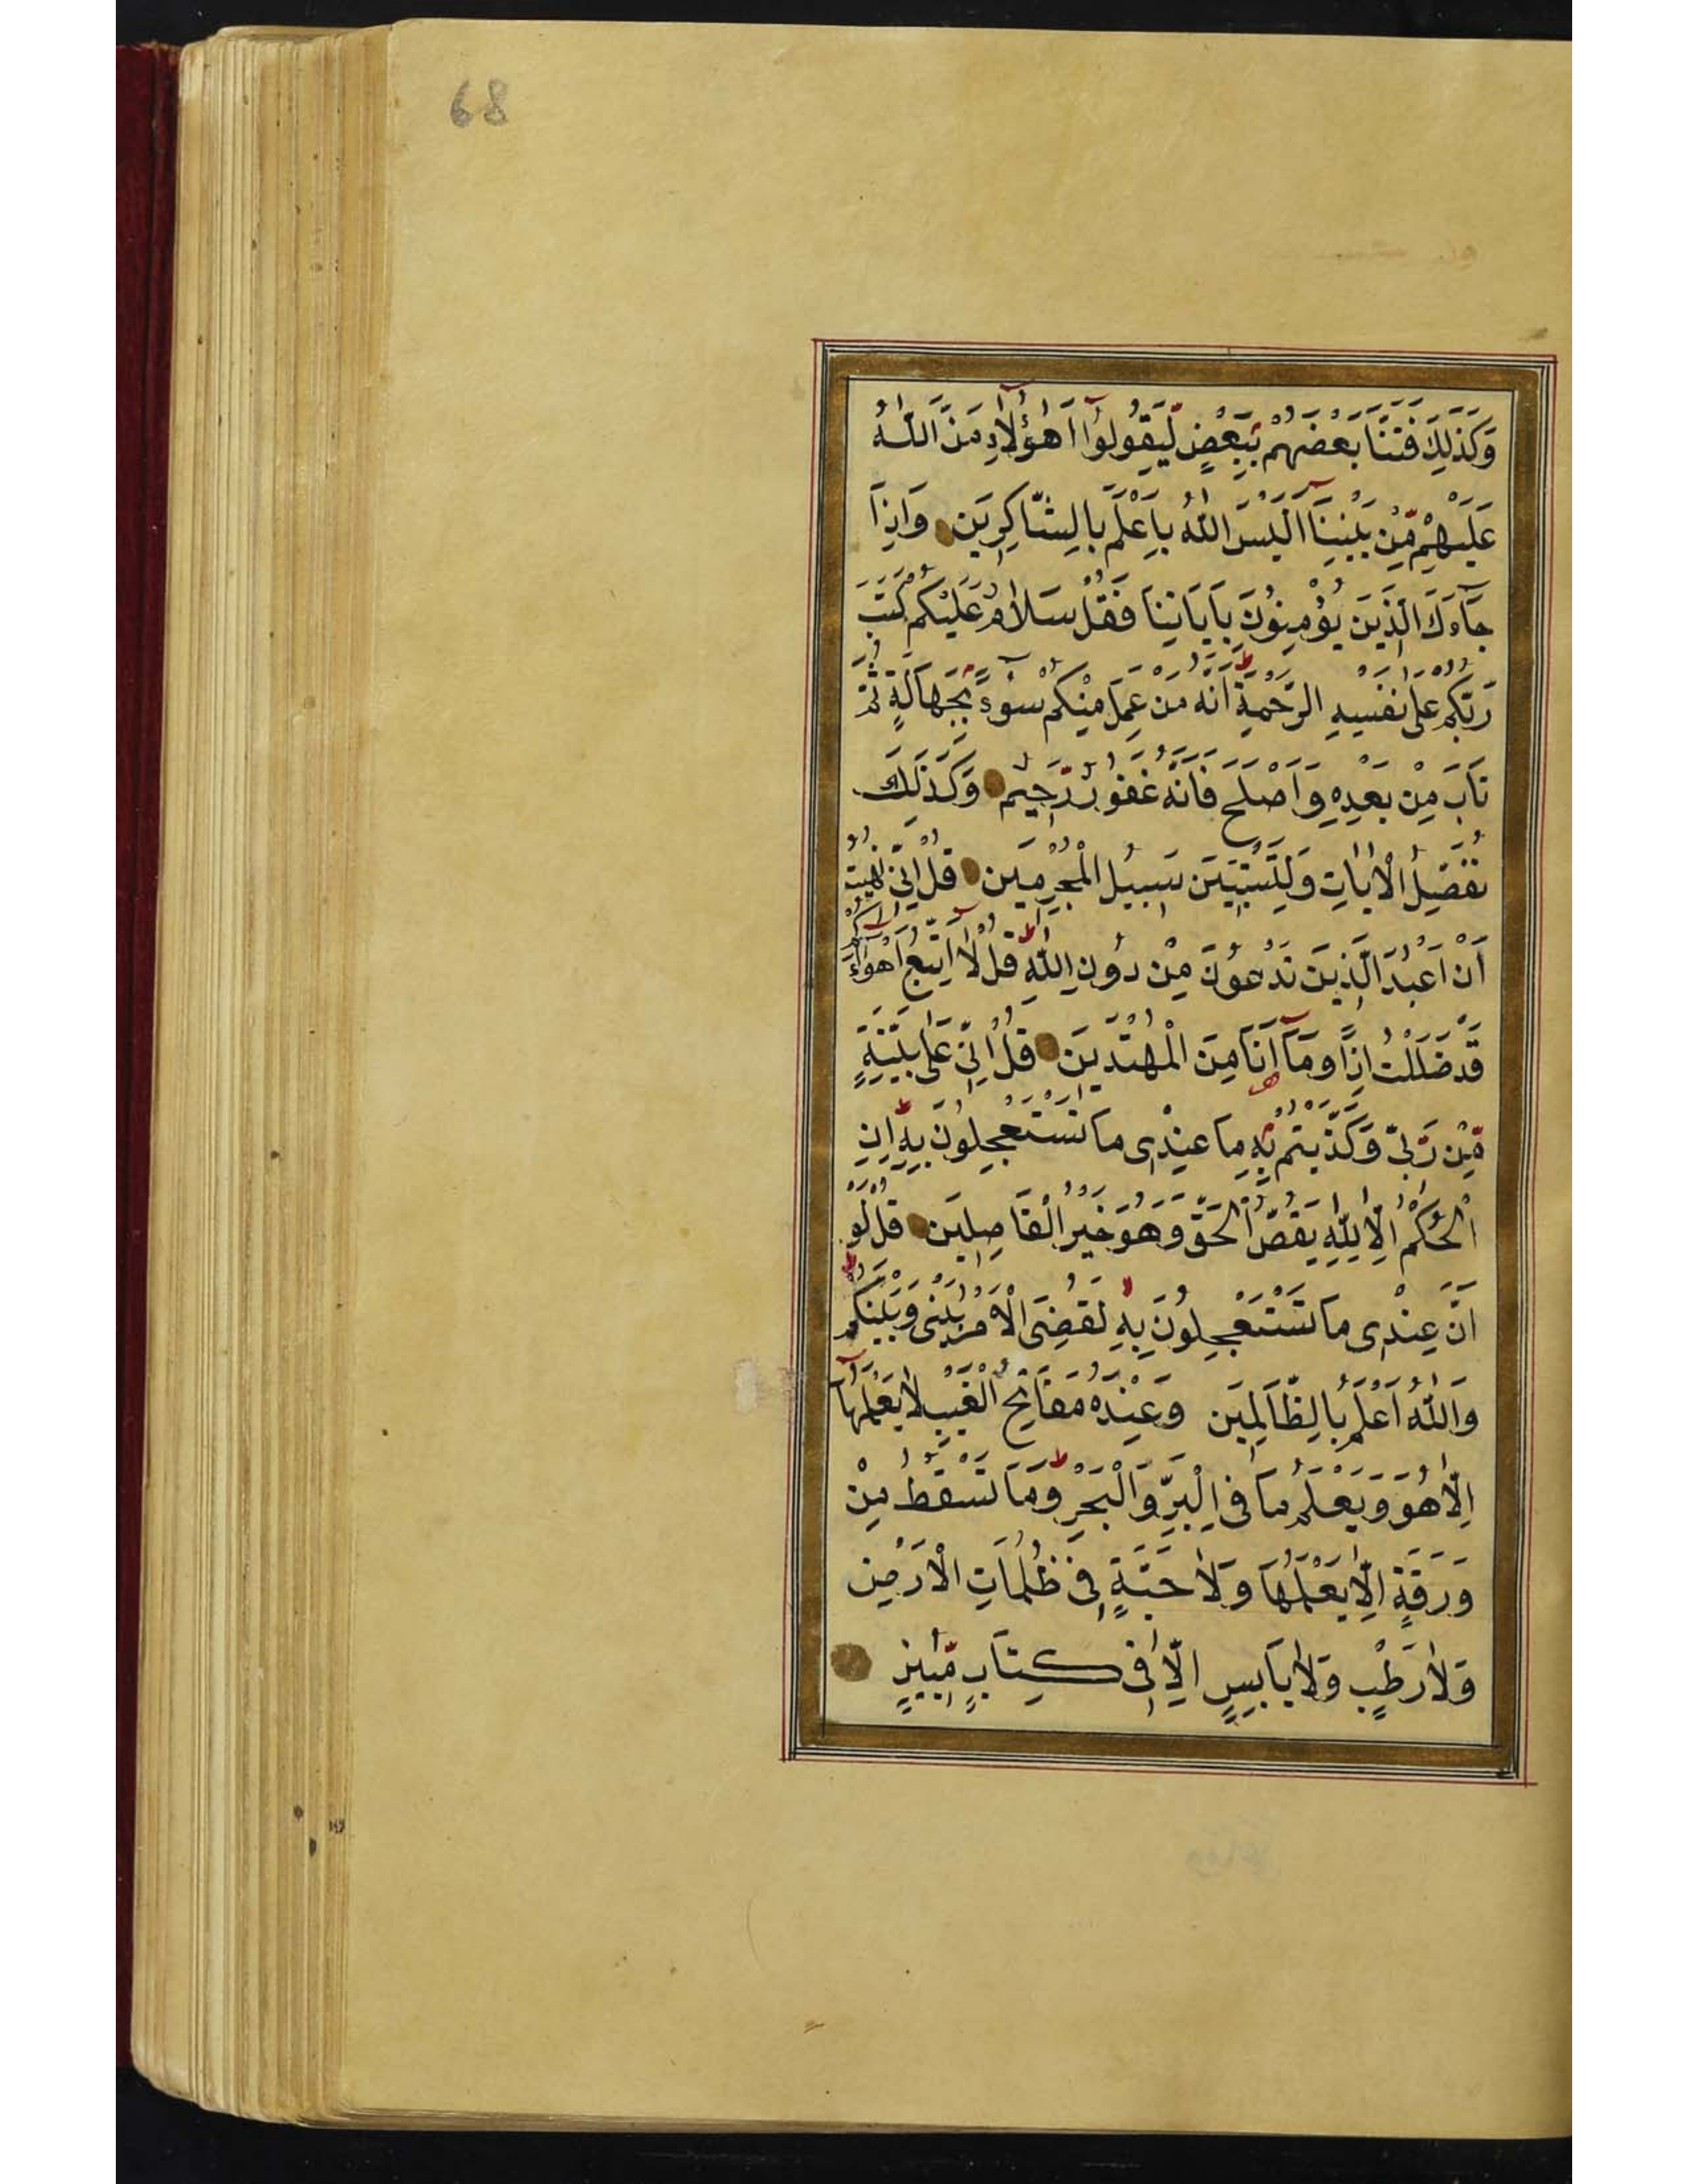 68
وَكَذٰلِكَ فَتَنَّا بَعْضَهُمْ بِبَعْضٍ لِّيَقُولُوٓا اَهٰٓؤُلَآءِ مَنَّ اللّٰهُ
عَلَيْهِمْ مِّنْ بَيْنِنَآ اَلَيْسَ اللّٰهُ بِاَعْلَمَ بِالشَّاكِرِينَ وَاِذَا
جَآءَكَ الَّذِينَ يُؤْمِنُونَ بِآيَاتِنَا فَقُلْ سَلَامٌ عَلَيْكُمْ كَتَبَ
رَبُّكُمْ عَلٰى نَفْسِهِ الرَّحْمَةَ اَنَّهُ مَنْ عَمِلَ مِنْكُمْ سُوٓءً بِجَهَالَةٍ ثُمَّ
تَابَ مِنْ بَعْدِهِ وَاَصْلَحَ فَاَنَّهُ غَفُورٌ رَّحِيمٌ وَكَذٰلِكَ
نُفَصِّلُ الْاٰيَاتِ وَلِتَسْتَبِينَ سَبِيلُ الْمُجْرِمِينَ قُلْ اِنِّى نُهِيتُ
اَنْ اَعْبُدَ الَّذِينَ تَدْعُونَ مِنْ دُونِ اللّٰهِ قُلْ لَآ اَتَّبِعُ اَهْوَآءَكُمْ
قَدْ ضَلَلْتُ اِذًا وَمَآ اَنَا مِنَ الْمُهْتَدِينَ قُلْ اِنِّى عَلٰى بَيِّنَةٍ
مِّنْ رَّبِّى وَكَذَّبْتُمْ بِهِ مَا عِنْدِى مَا تَسْتَعْجِلُونَ بِهِ اِنِ
الْحُكْمُ اِلَّا لِلّٰهِ يَقُصُّ الْحَقَّ وَهُوَ خَيْرُ الْفَاصِلِينَ قُلْ لَوْ
اَنَّ عِنْدِى مَا تَسْتَعْجِلُونَ بِهِ لَقُضِىَ الْاَمْرُ بَيْنِى وَبَيْنَكُمْ
وَاللّٰهُ اَعْلَمُ بِالظَّالِمِينَ وَعِنْدَهُ مَفَاتِحُ الْغَيْبِ لَا يَعْلَمُهَآ
اِلَّا هُوَ وَيَعْلَمُ مَا فِى الْبَرِّ وَالْبَحْرِ وَمَا تَسْقُطُ مِنْ
وَرَقَةٍ اِلَّا يَعْلَمُهَا وَلَا حَبَّةٍ فِى ظُلُمَاتِ الْاَرْضِ
وَلَا رَطْبٍ وَلَا يَابِسٍ اِلَّا فِى كِتَابٍ مُّبِينٍ